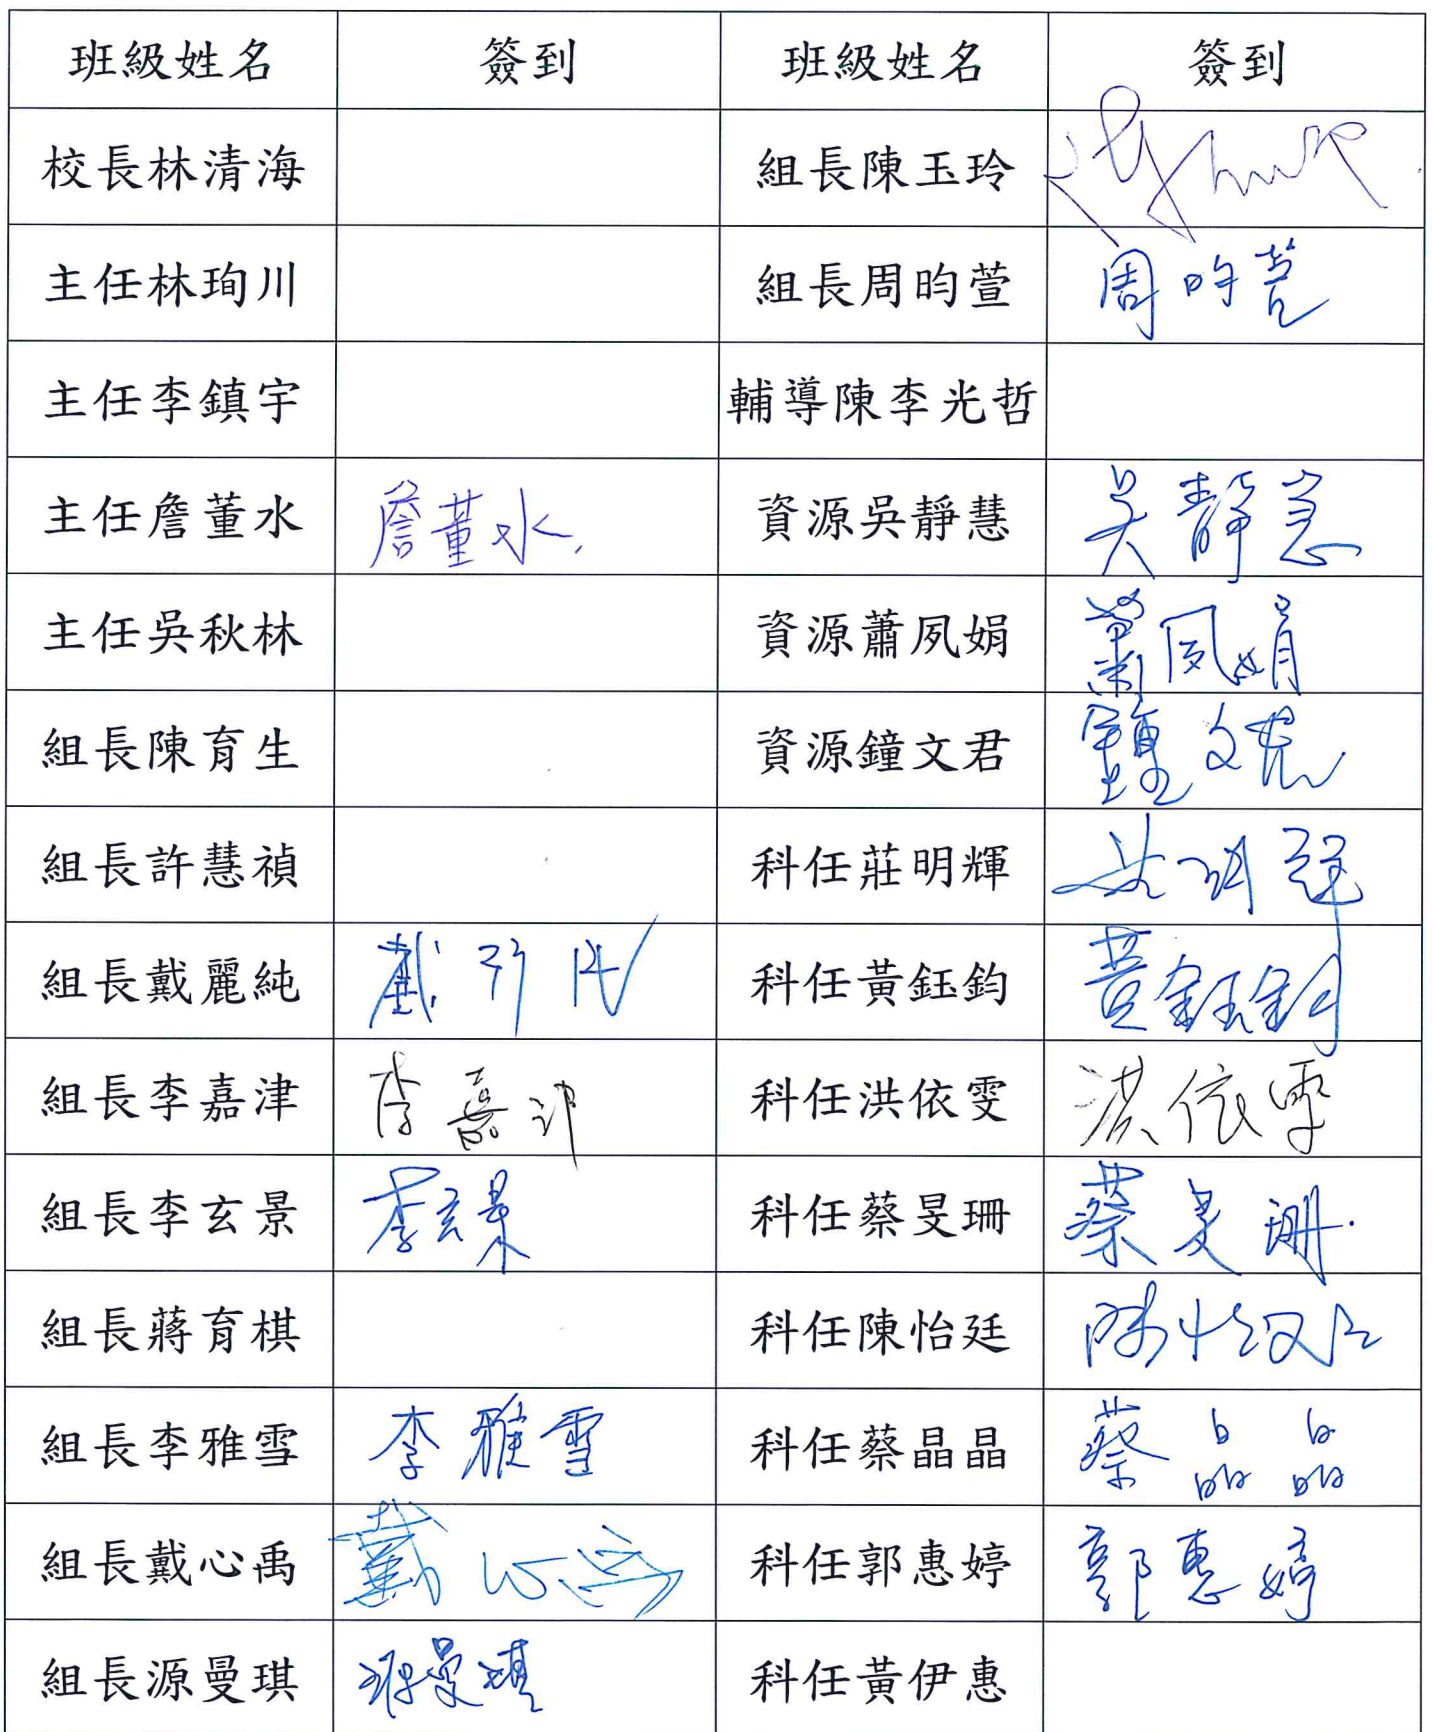 班級姓名 簽到 班級姓名 簽到
校長林清海 組長陳玉玲
主任林珣川 組長周昀萱 周昀萱
主任李鎮宇 輔導陳李光哲
主任詹董水 詹董水 資源吳靜慧 吳靜慧
主任吳秋林 資源蕭夙娟 蕭夙娟
組長陳育生 資源鐘文君 鐘文君
組長許慧禎 科任莊明輝 莊明輝
組長戴麗純 戴 科任黃鈺鈞 黃鈺鈞
組長李嘉津 李嘉津 科任洪依雯 洪依雯
組長李玄景 李玄景 科任蔡旻珊 蔡旻珊
組長蔣育棋 科任陳怡廷 陳怡廷
組長李雅雪 李雅雪 科任蔡晶晶 蔡晶晶
組長戴心禹 戴心禹 科任郭惠婷 郭惠婷
組長源曼琪 源曼琪 科任黃伊惠